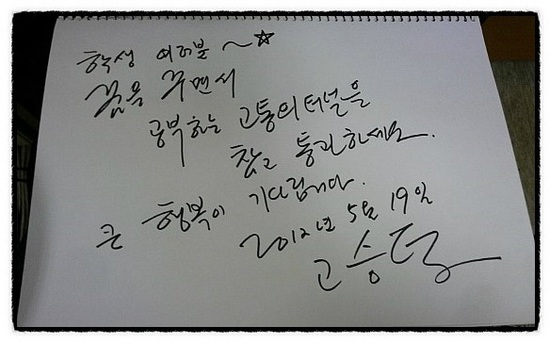 학생 여러분 ~☆
꿈을 꾸면서
공부하는 고통의 터널을
참고 통과하세요.
큰 행복이 기다립니다.
2012년 5월 19일
고승덕